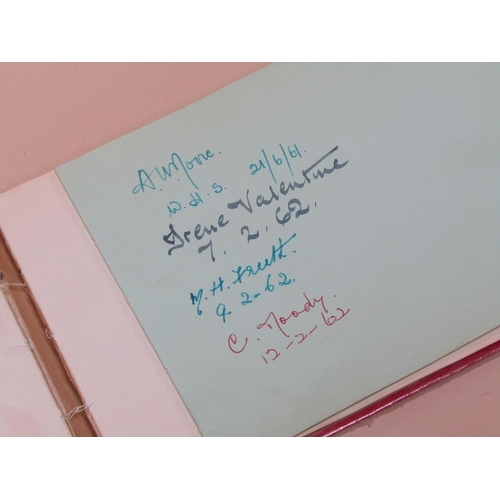 A. W. Moore.
W. H. S. 21/6/61.
Irene Valentine
7. 2. 62.
M. H. Freeth.
9. 2-62.
C. Moody.
12-2-62